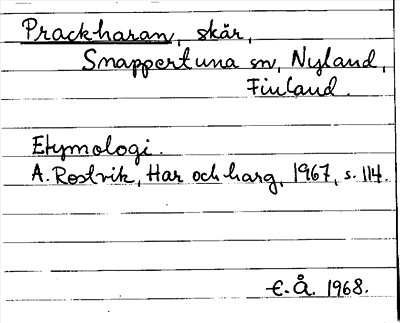 Prackharan, skär,
Snappertuna sn, Nyland,
Finland.
Etymologi.
A. Rostvik, Har och harg, 1967, s. 114.
E. Å. 1968.